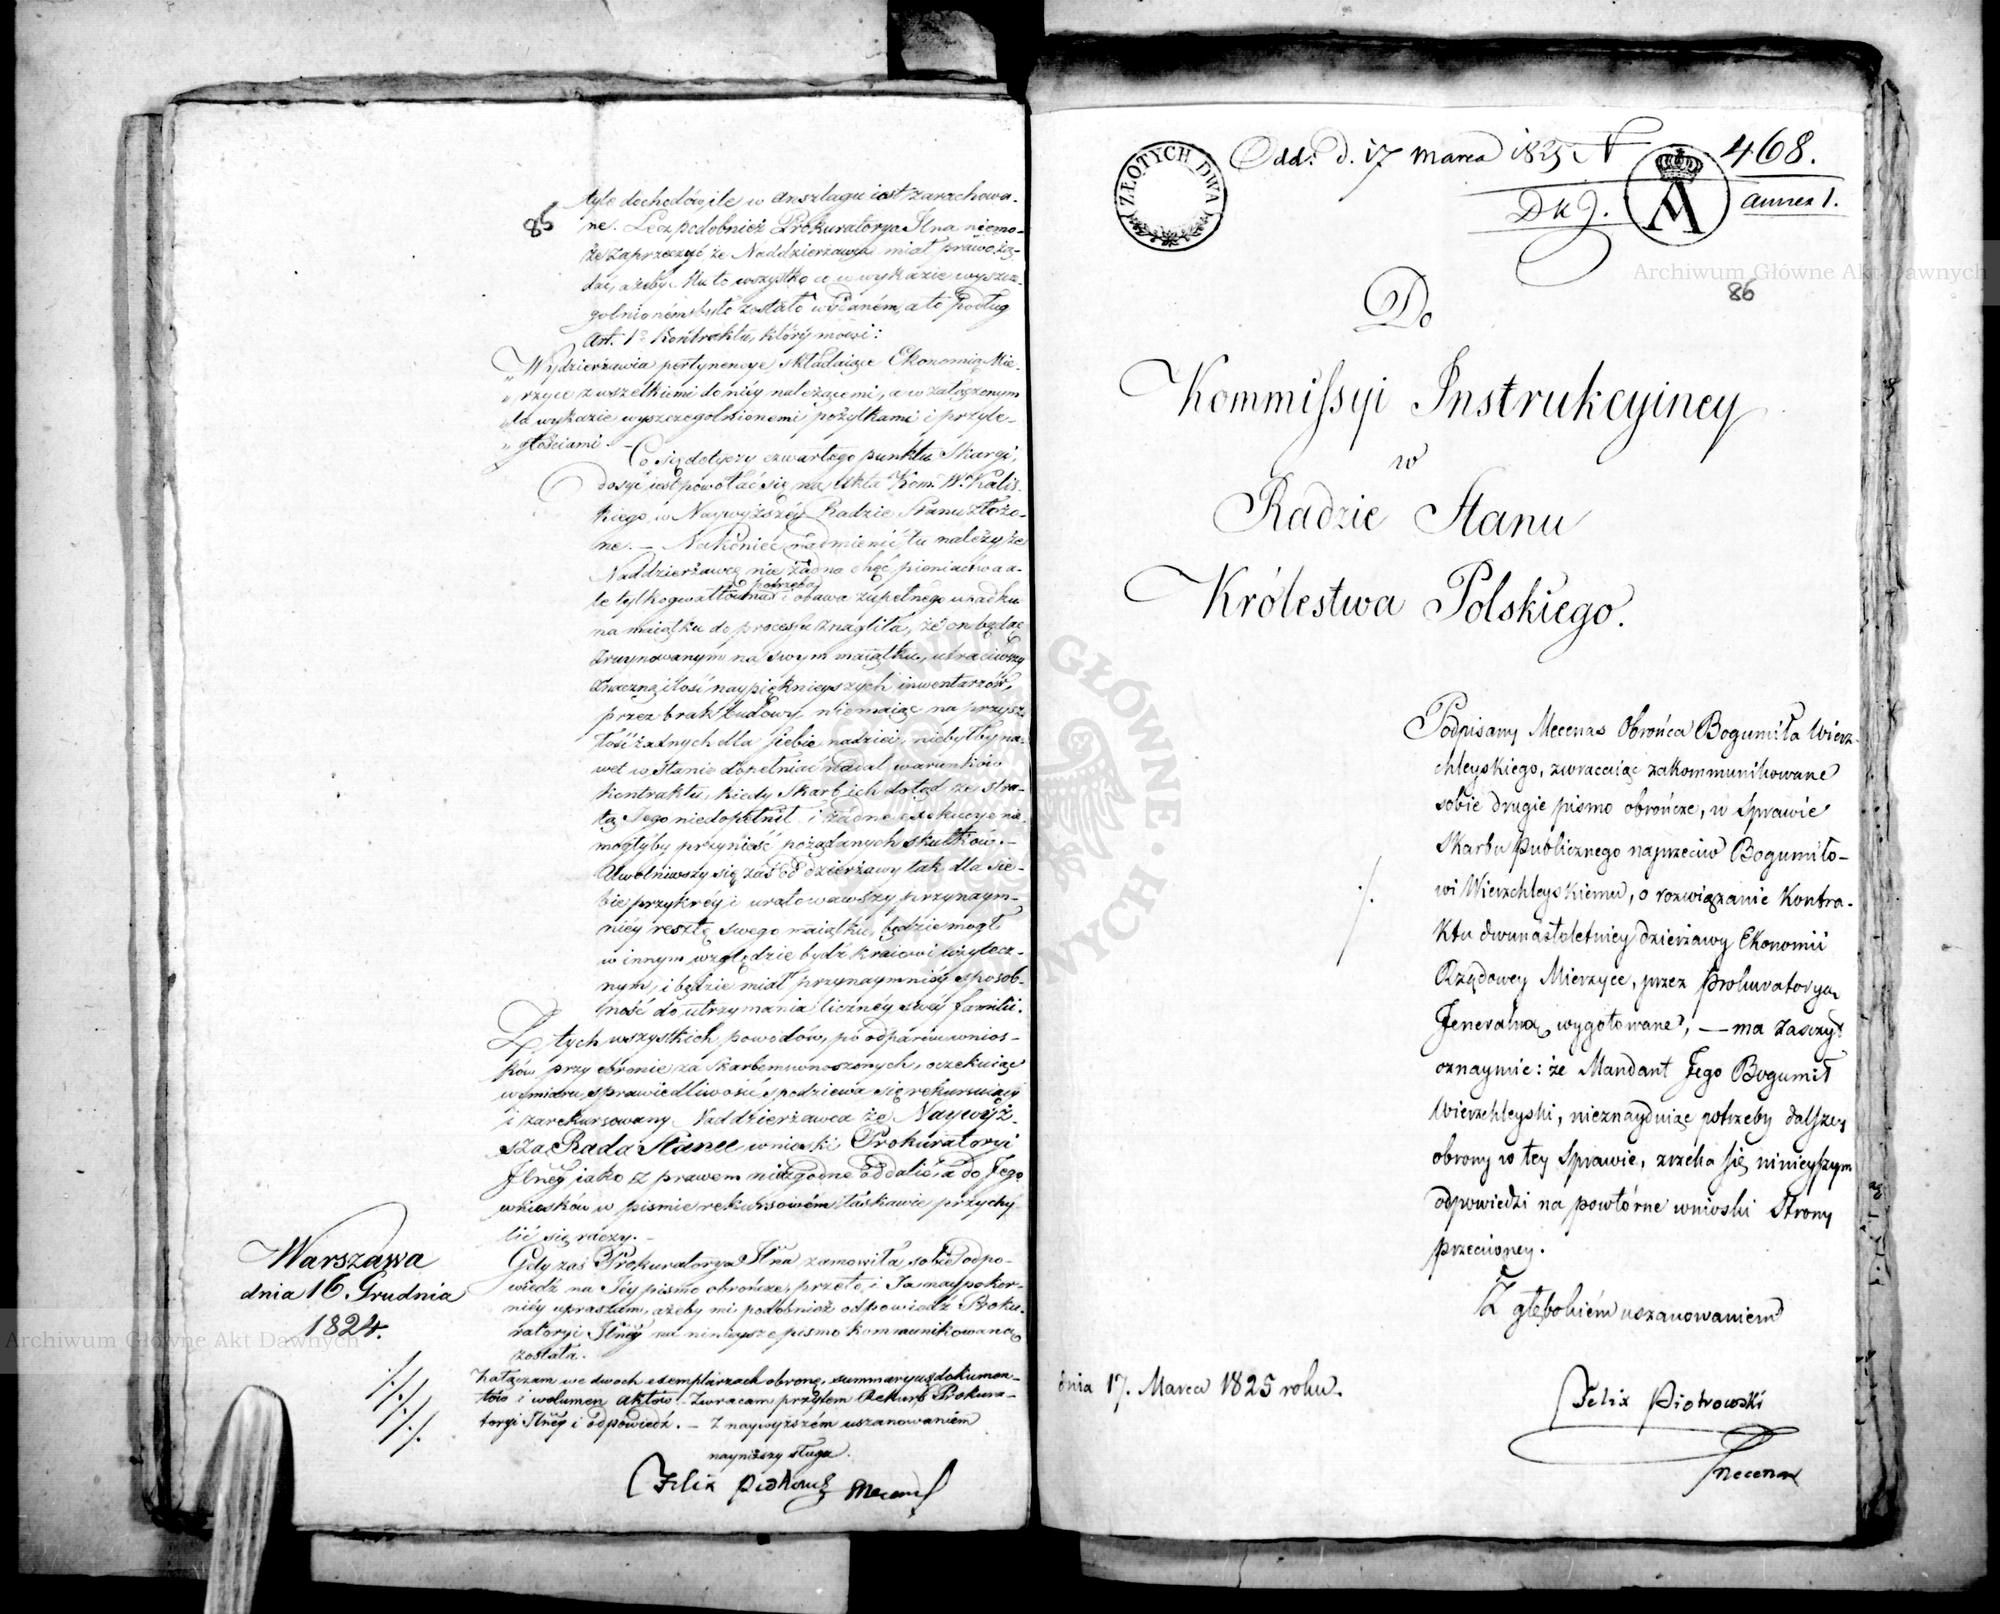 85
tyle dochodów, ile w anszlagu iest zarachowa-
ne. Lecz podobnież Prokuratorya Jlna niemo-
że zaprzeczyć że Naddzierżawca miał prawo żą-
dać, ażeby Mu to wszystko co w wykazie wyszcze-
gólnioném było zostało wydaném, a to podług
Art. 1º Kontraktu, który mówi:
„Wydzierżawia pertynencye składaiące Ekonomią Mie-
„rzyce z wszelkiemi do niéy należącemi, a w załączonym
„tu wykazie wyszczególnionemi pożytkami i przyle-
„głościami. —
Co się dotyczy czwartego punktu Skargi,
dosyć iest powołać się na Akta Kom. W. Kalis-
kiego, w Naywyższéy Radzie Stanu złożo-
ne. — Nakoniec nadmienić tu należy, że
Naddzierżawcę nie żadna chęć pieniactwa a-
le tylko gwałtowna potrzeba i obawa zupełnego upadku
na maiątku do processu znagliła, że on będąc
zruynowanym na swym maiątku, utraciwszy
znaczną ilość naypięknieyszych inwentarzów,
przez brak budowy, niemaiąc na przysz-
łość żadnych dla siebie nadziei, niebyłby na-
wet w stanie dopełniać nadal warunków
kontraktu, kiedy Skarb ich dotąd ze stra-
tą Jego niedopełnił i żadne exekucye nie
mogłyby przynieść pożądanych skutków. —
Uwolniwszy się zaś od dzierżawy tak dla sie-
bie przykréy i uratowawszy przynaym-
niéy resztę swego maiątku, będzie mógł
w innym względzie bydź kraiowi użytecz-
nym, i będzie miał przynaymniéy sposob-
ność do utrzymania licznéy swéy familii.
Z tych wszystkich powodów, po odparciu wnios-
ków przy obronie za Skarbem wnoszonych, oczekuiąc
wymiaru sprawiedliwości, spodziewa się rekursuiący
i zarekursowany Naddzierżawca że Naywyż-
sza Rada Stanu wnioski Prokuratoryi
Jlnéy iako z prawem niezgodne oddalić, a do Jego
wniosków w piśmie rekursowém łaskawie przychy-
lić się raczy. —
Gdy zaś Prokuratorya Jlna zamówiła sobie odpo-
wiedź na Jéy pismo obrończe, przeto i Ja naypokor-
niéy upraszam, ażeby mi podobnież odpowiedź Proku-
ratoryi Jlnéy na ninieysze pismo kommunikowaną
została.
Załączam we dwoch exemplarzach obronę, summaryusz dokumen-
tów i wolumen Aktów. Zwracam przytem Rekurs Prokura-
toryi Jlnéy i odpowiedź. — Z naywyższém uszanowaniem
nayniższy sługa.
Felix Piotrowski Mecenas
Warszawa
dnia 16. Grudnia
1824.
ZŁOTYCH DWA
Odd: d. 17 Marca 1825 N 468.
Dkg. Annex 1.
86
Do
Kommissyi Instrukcyiney
w
Radzie Stanu
Królestwa Polskiego.
Podpisany Mecenas Obrońca Bogumiła Wierz-
chleyskiego, zwracaiąc zakommunikowane
sobie drugie pismo obrończe, w Sprawie
Skarbu Publicznego naprzeciw Bogumiło-
wi Wierzchleyskiemu, o rozwiązanie Kontra-
ktu dwunastoletniey dzierżawy Ekonomii
Rządowey Mierzyce, przez Prokuratoryą
Jeneralną wygotowane, — ma zaszczyt
oznaymić: że Mandant Jego Bogumił
Wierzchleyski, nieznayduiąc potrzeby dalszey
obrony w tey Sprawie, zrzéka się ninieyszym
odpowiedzi na powtórne wnioski Strony
przeciwney.
Z głębokiém uszanowaniem
dnia 17. Marca 1825 roku.
Felix Piotrowski
Mecenas
Archiwum Główne Akt Dawnych
Archiwum Główne Akt Dawnych